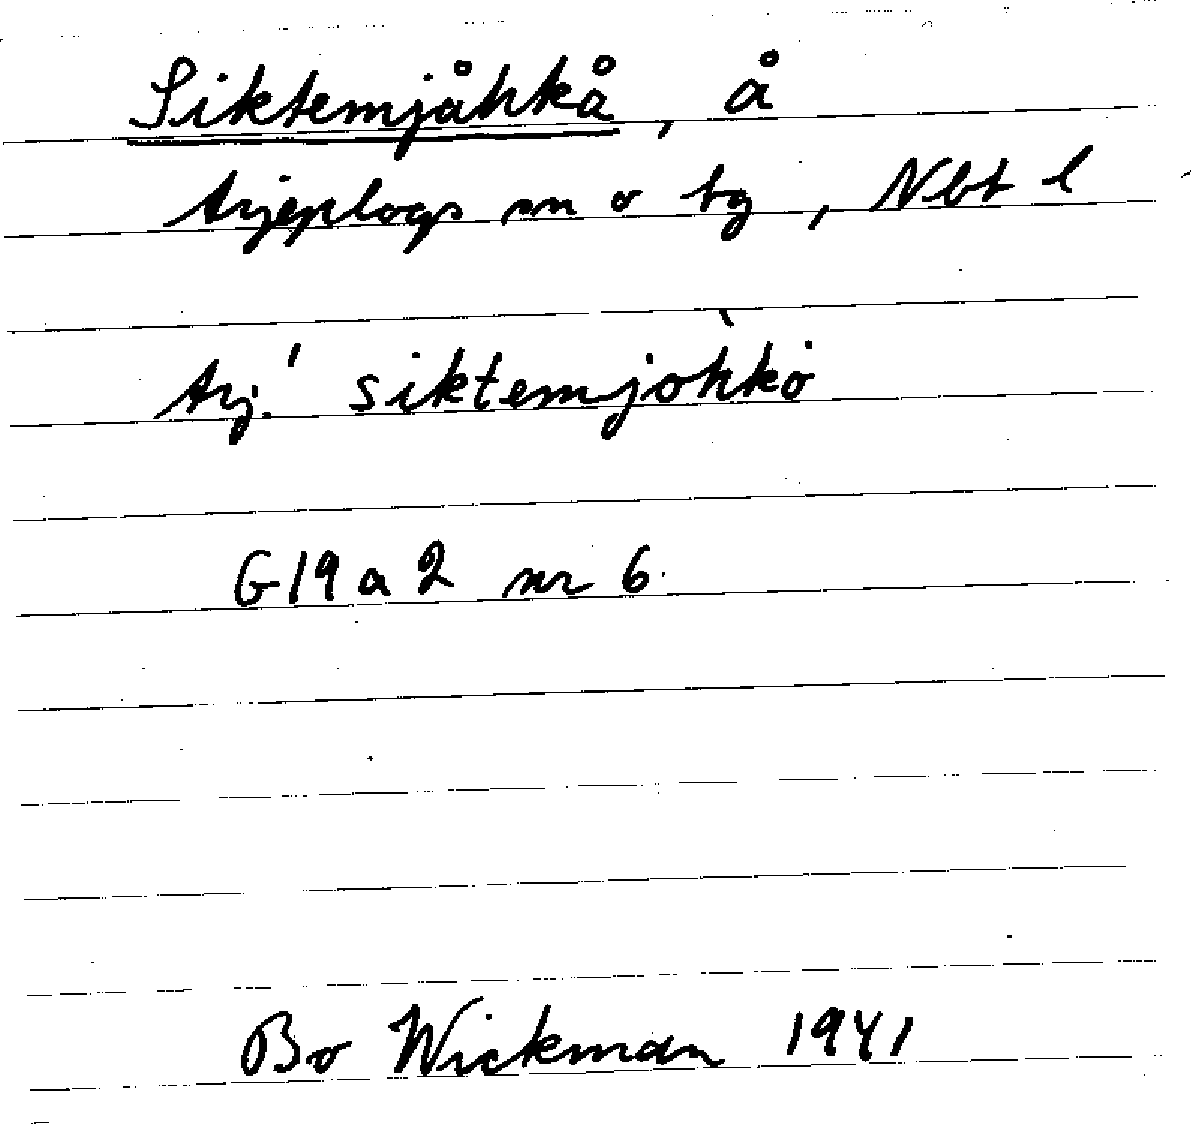 Siktemjåhkå, å
Arjeplogs sn o tg, Nbt l
Arj. ˈsiktemjòhkȯ
G19 a 2 nr 6.
Bo Wickman 1941